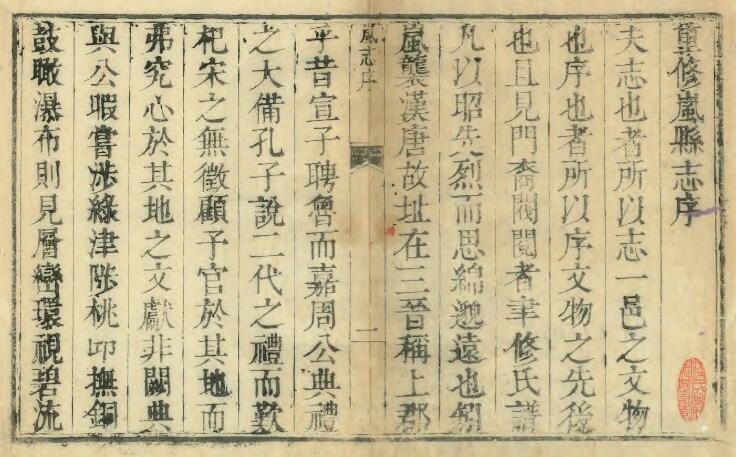 重修嵐縣志序
夫志也者所以志一邑之文物
也序也者所以序文物之先後
也且見門裔閥閱者率修氏譜
凡以昭先烈而思綿邈遠也矧
嵐襲漢唐故址在三晉稱上郡
嵐志序
一
乎昔宣子聘魯而嘉周公典禮
之大備孔子說二代之禮而歎
杞宋之無徵顧予官於其地而
弗究心於其地之文獻非闕典
與公暇嘗涉綠津陟桃卭撫銅
鼓瞰瀑布則見層巒環視碧流